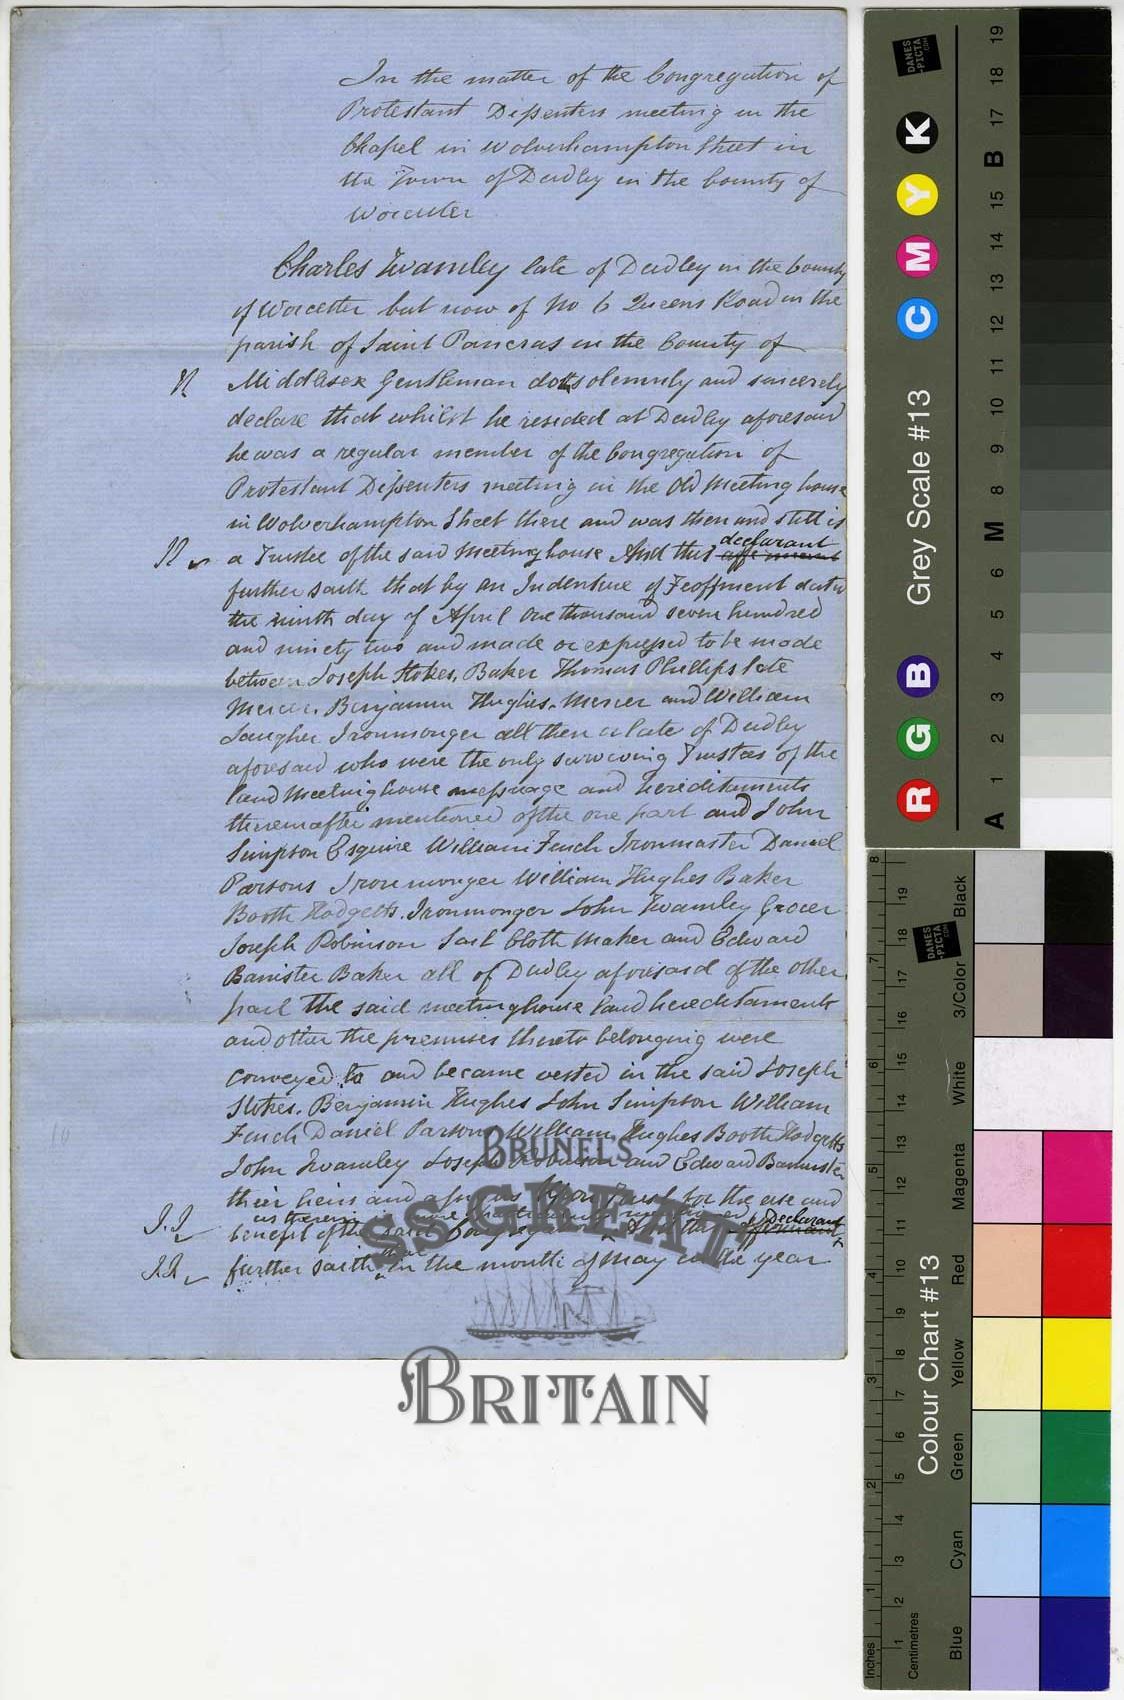 In the matter of the Congregation of
Protestant Dissenters meeting in the
Chapel in Wolverhampton Street in
the Town of Dudley in the County of
Worcester
Charles Twamley late of Dudley in the County
of Worcester but now of No 6 Queens Road in the
parish of Saint Pancras in the County of
Middlesex Gentleman doth solemnly and sincerely
declare that whilst he resided at Dudley aforesaid
he was a regular member of the Congregation of
Protestant Dissenters meeting in the Old Meeting house
in Wolverhampton Street there and was then and still is
a Trustee of the said Meetinghouse And this declarant
further saith that by an Indenture of Feoffment dated
the ninth day of April One thousand seven hundred
and ninety two and made or expressed to be made
between Joseph Stokes, Baker Thomas Phillips late
Mercer, Benjamin Hughes, Mercer and William
Ironmonger all then or late of Dudley
aforesaid who were the only surviving Trustees of the
land Meetinghouse messuage and hereditaments
thereinafter mentioned of the one part and John
Simpson Esquire William Finch Ironmaster Daniel
Parsons Ironmonger William Hughes Baker
Booth Hodgetts, Ironmonger John Twamley Grocer
Joseph Robinson Sail Cloth Maker and Edward
Banister Baker all of Dudley aforesaid of the other
part the said meetinghouse land hereditaments
and other the premises thereto belonging were
conveyed to and became vested in the said Joseph
Stokes, Benjamin Hughes John Simpson William
Finch Daniel Parsons William Hughes Booth Hodgetts
John Twamley Joseph Robinson and Edward Bannister
their heirs and assigns Upon Trust for the use and
benefit of the said Congregation And this Declarant
further saith that in the month of May in the year
10
BRUNEL'S
SS GREAT
BRITAIN
DANES
-PICTA
.COM
Grey Scale #13
R G B C M Y K
A 1 2 3 4 5 6 M 8 9 10 11 12 13 14 15 B 17 18 19
DANES
-PICTA
.COM
Colour Chart #13
Blue Cyan Green Yellow Red Magenta White 3/Color Black
Inches 1 2 3 4 5 6 7 8
Centimetres 1 2 3 4 5 6 7 8 9 10 11 12 13 14 15 16 17 18 19